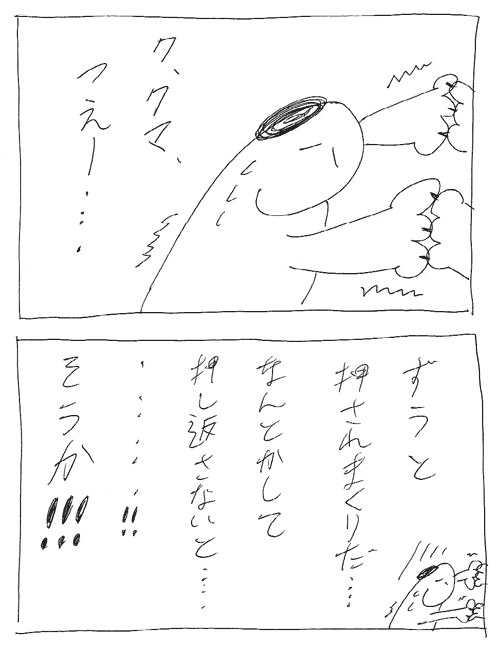 ク、クマ、
つえー・・・
ずうっと
押されまくりだ・・・
なんとかして
押し返さないと・・・・
・・・・・!!
そうか!!!